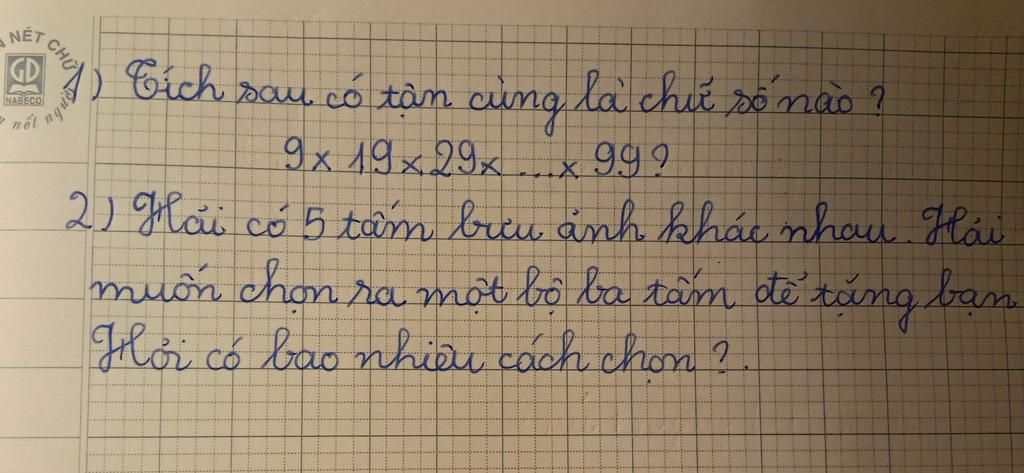 N NÉT CHỮ
GD
NABECO
nết người
1) Tích sau có tận cùng là chữ số nào?
9 x 19 x 29 x ... x 99?
2) Hải có 5 tấm bưu ảnh khác nhau. Hải
muốn chọn ra một bộ ba tấm để tặng bạn
Hỏi có bao nhiêu cách chọn?.